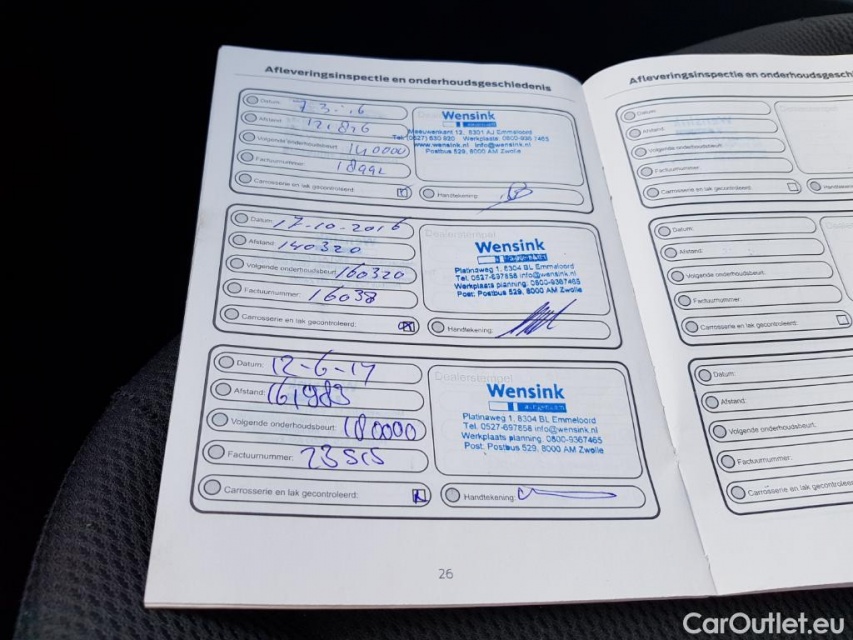 Afleveringsinspectie en onderhoudsgeschiedenis
Datum:
Afstand:
Volgende onderhoudsbeurt: 140000
Factuurnummer:
Carrosserie en lak gecontroleerd: X
Wensink
Meeuwenkant 12, 8301 AJ Emmeloord
www.wensink.nl info@wensink.nl
Postbus 529, 8000 AM Zwolle
Handtekening:
Datum: 17-10-2016
Afstand: 140320
Volgende onderhoudsbeurt: 160320
Factuurnummer: 16038
Carrosserie en lak gecontroleerd: X
Wensink
Platinaweg 1, 8304 BL Emmeloord
Tel. 0527-697858 info@wensink.nl
Werkplaats planning: 0800-9367465
Post: Postbus 529, 8000 AM Zwolle
Handtekening:
Datum: 12-6-17
Afstand: 161983
Volgende onderhoudsbeurt: 180000
Factuurnummer: 23515
Carrosserie en lak gecontroleerd: X
Dealerstempel
Wensink
Platinaweg 1, 8304 BL Emmeloord
Tel. 0527-697858 info@wensink.nl
Werkplaats planning: 0800-9367465
Post: Postbus 529, 8000 AM Zwolle
Handtekening:
26
Afleveringsinspectie en
Datum:
Afstand:
Volgende onderhoudsbeurt:
Factuurnummer:
Carrosserie en lak gecontroleerd:
Datum:
Afstand:
Volgende onderhoudsbeurt:
Factuurnummer:
Carrosserie en lak gecontroleerd:
Datum:
Afstand:
Volgende onderhoudsbeurt:
Factuurnummer:
Carrosserie en lak
CarOutlet.eu